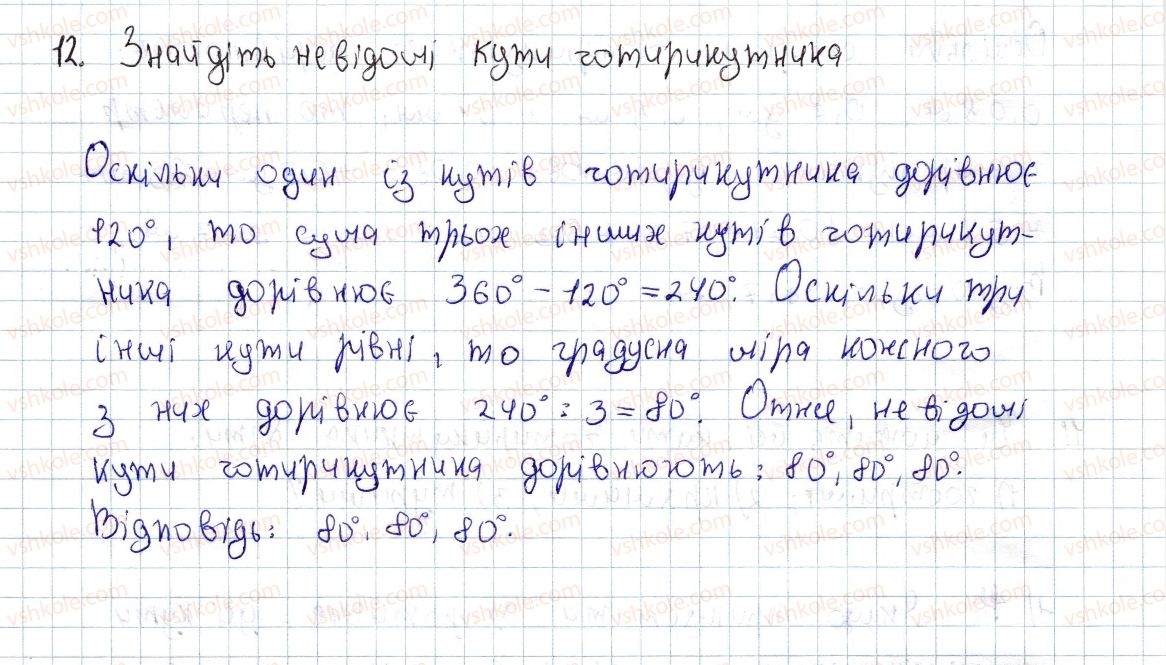 12. Знайдіть невідомі кути чотирикутника
Оскільки один із кутів чотирикутника дорівнює
120°, то сума трьох інших кутів чотирикут-
ника дорівнює 360° - 120° = 240°. Оскільки три
інші кути рівні, то градусна міра кожного
з них дорівнює 240° : 3 = 80°. Отже, невідомі
кути чотирикутника дорівнюють: 80°, 80°, 80°.
Відповідь: 80°, 80°, 80°.